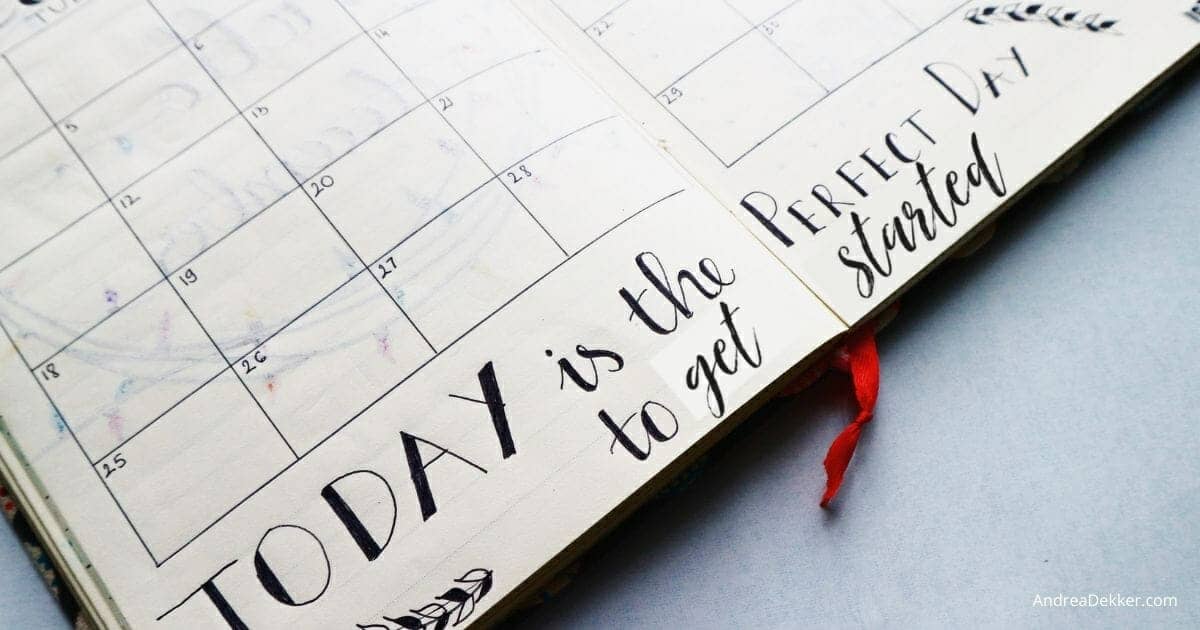 5 6
12 13 14
18 19 20 21
25 26 27 28
22
29 30
TODAY is the PERFECT DAY
to get started
AndreaDekker.com